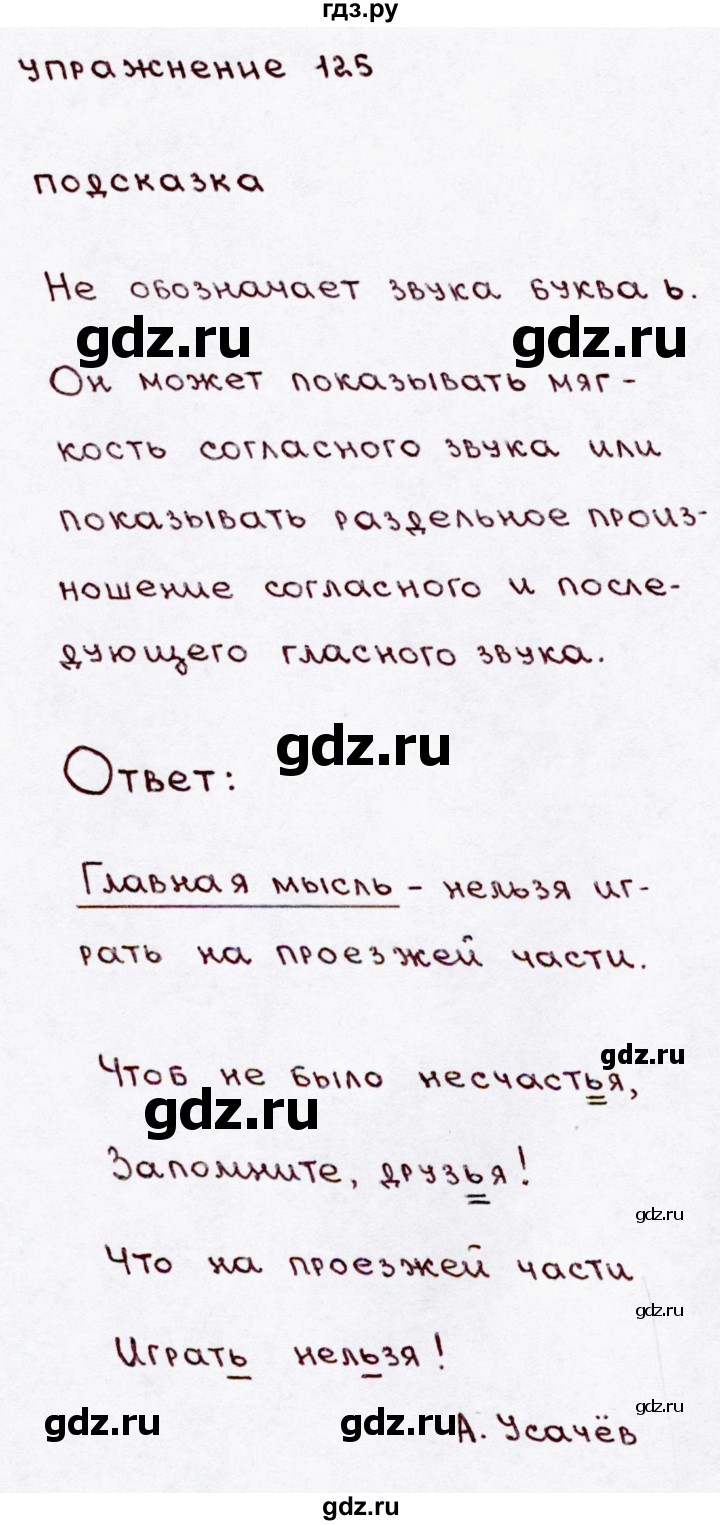 гдз.ру
упражнение 125
подсказка
Не обозначает звука буква ь.
gdz.ru gdz.ru
Он может показывать мяг-
кость согласного звука или
показывать раздельное произ-
ношение согласного и после-
дующего гласного звука.
gdz.ru
Ответ:
Главная мысль - нельзя иг-
рать на проезжей части.
gdz.ru
Чтоб не было несчастья,
gdz.ru
Запомните, друзья!
gdz.ru
Что на проезжей части
gdz.ru
Играть нельзя!
gdz.ru
gdz.ru gdz.ru
А. Усачёв
gdz.ru